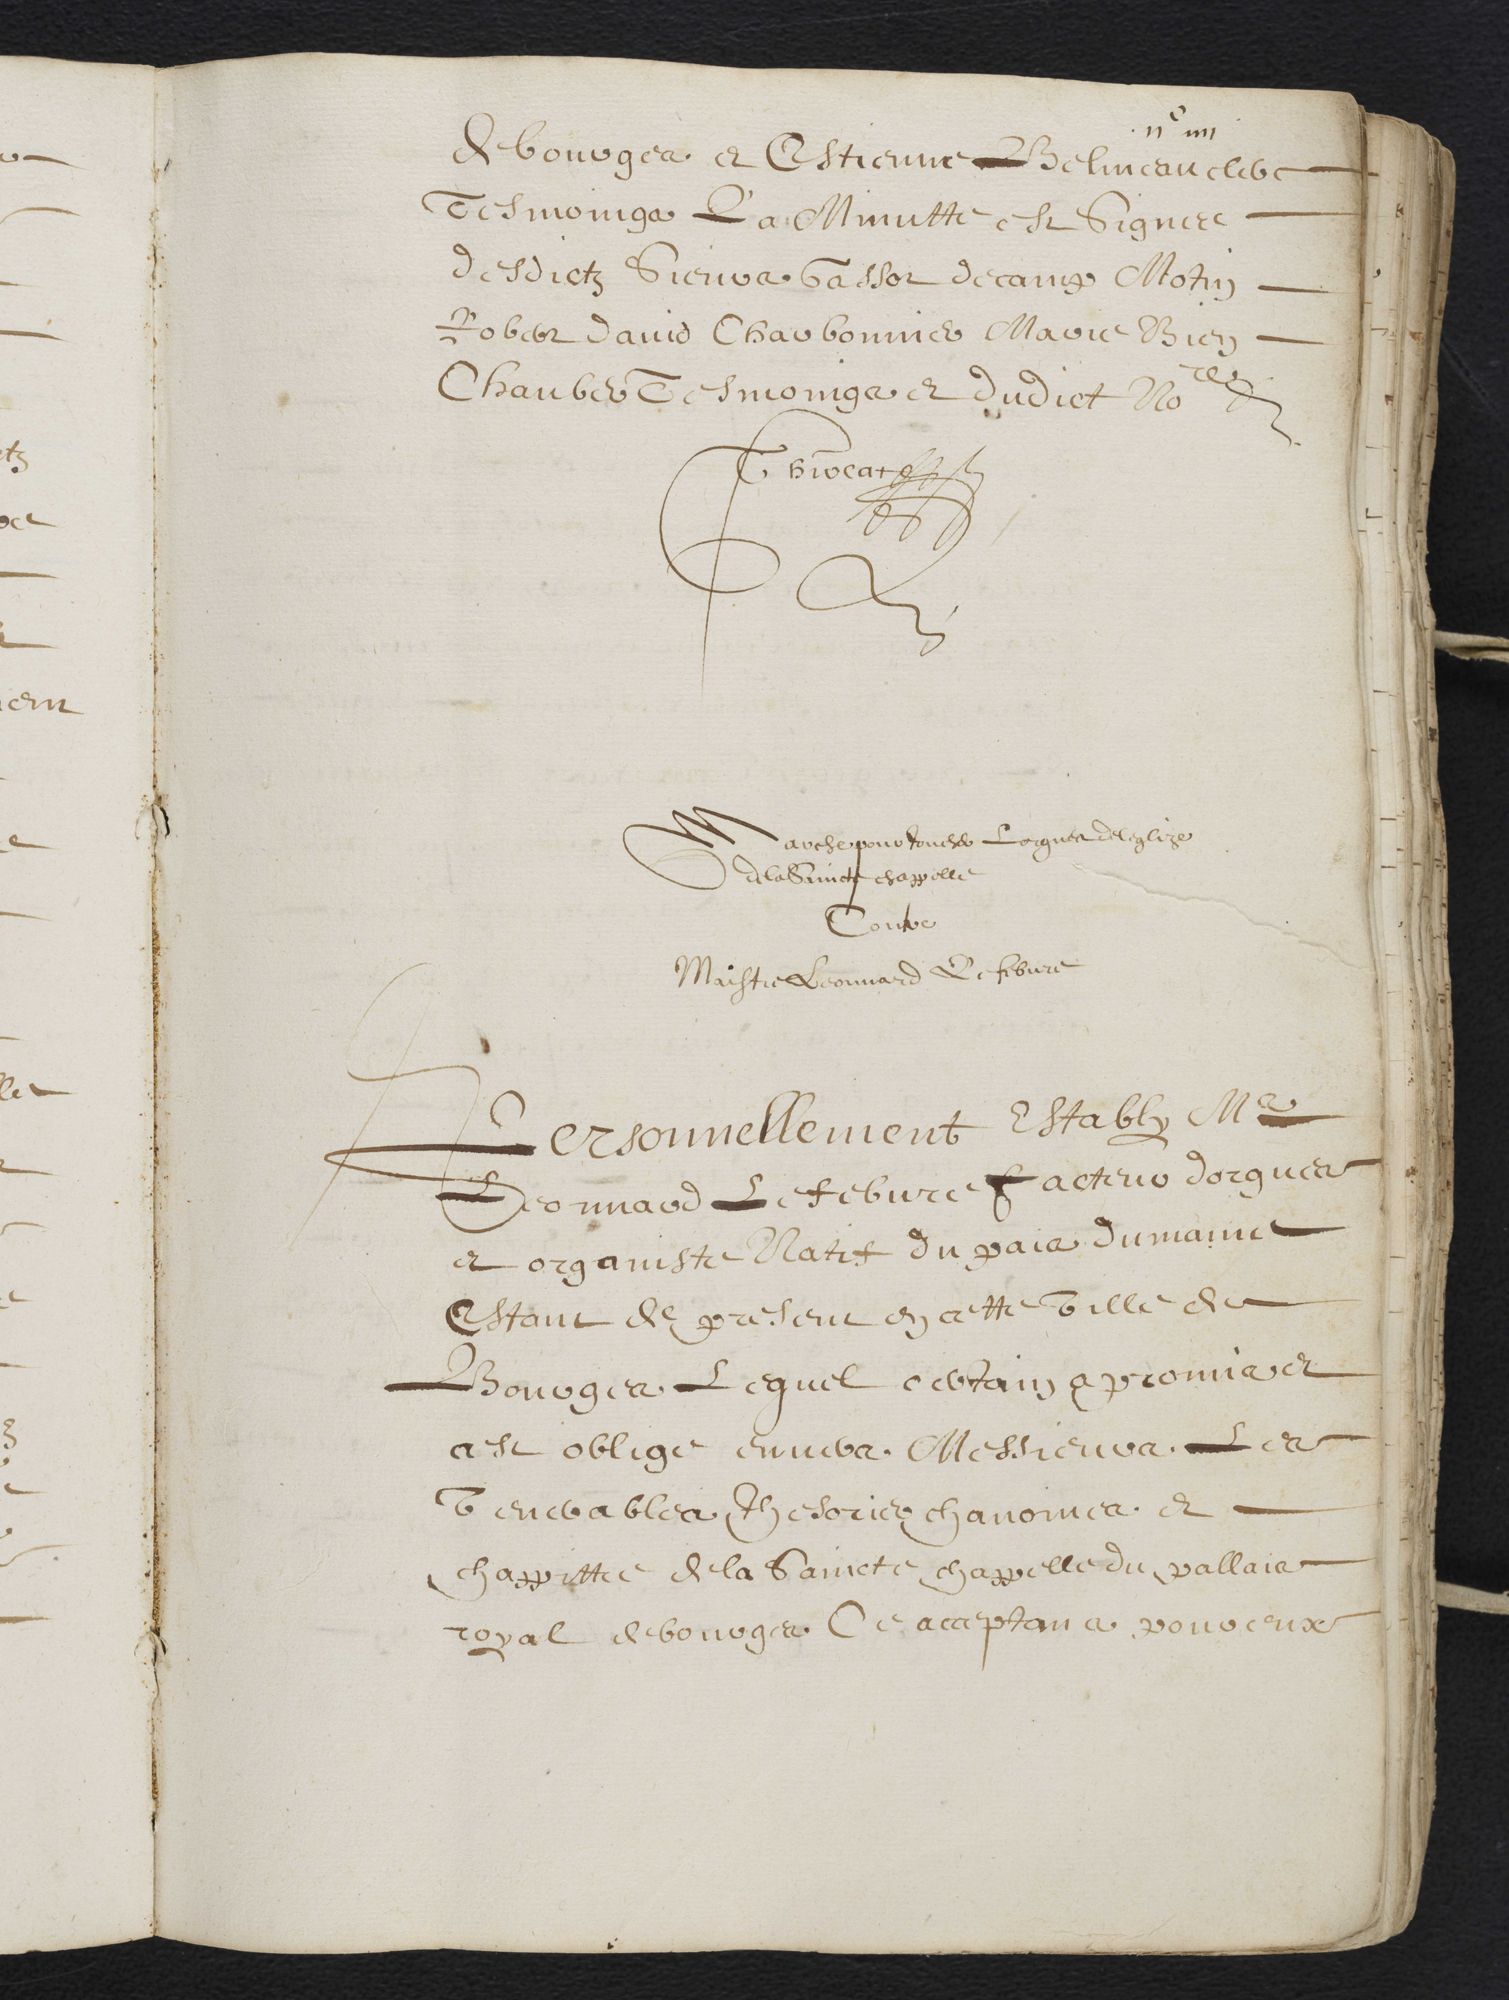 iic iiii
de bourges et Estienne Belineau clerc
Tesmoings La Minutte est Signeee
desdictz Sieurs Vassor decamp Motin
Robert david Charbonnier Marie Bien
Chauber Tesmoings et dudict No.re
Thureat
Marche pour toucher Lorgues de leglize
de la Saincte chappelle
Contre
Maistre Leonnard Lefebure
Personnellement Estably Me
Leonnard Lefebure facteur dorgues
et organiste Natif du pais dumaine
Estant de present en cette Ville de
Bourges Lequel certain a promis et
cest oblige envers Messieurs Les
Venerables thesorier chanoines et
chappittre de la Saincte chappelle du pallais
royal de bourges Ce acceptans pour eux